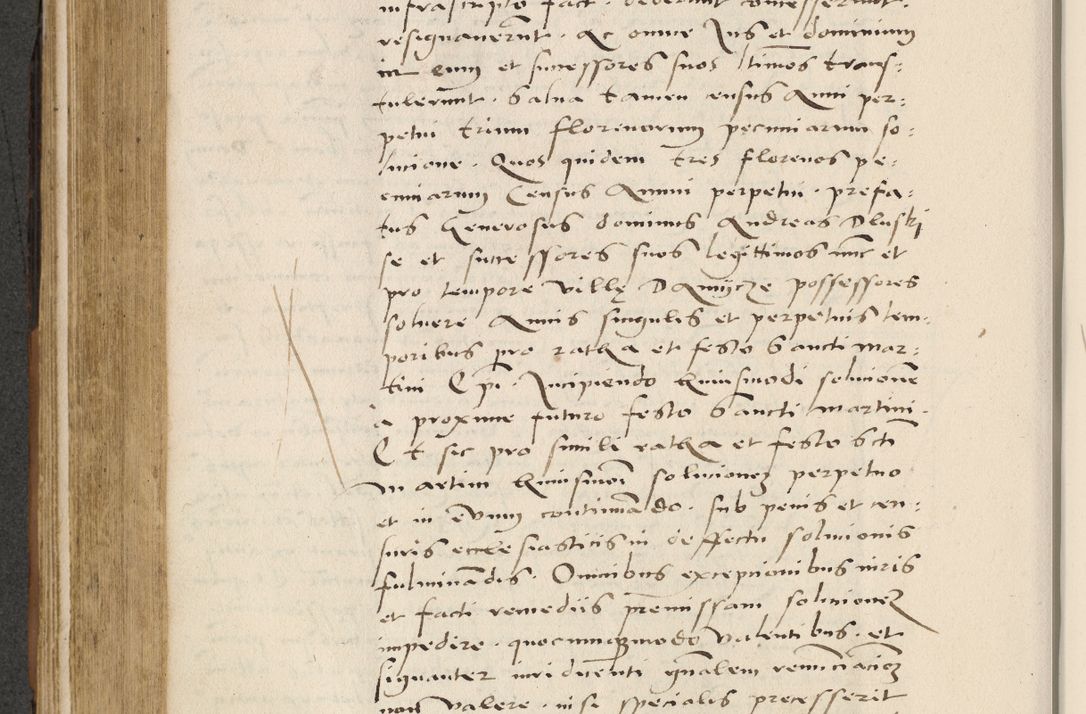 infrascripto fact. dederunt concesserunt.
resignauerūt. Ac omne Ius et dominium
in eum et successores suos ltīmos trans:
tulerunt. Salua tamen census Annui per:
petui trium florenorum pecuniarum so:
lucione. Quos quidem tres florenos pe:
cuniarum Census Annui perpetui. prefa:
tus Generosus dominus Andreas Dluski
se et successores suos legittimos nūc et
pro tempore villę DAmycze possessores
soluere Annis singulis et perpetuis tem:
poribus pro ratha et festo Sancti Mar:
tini Epī. Incipiendo huiusmodi solucionē
à proxime futuro festo Sancti Martini.
Et sic pro simili ratha et festo Scti
Martini huiusmōi solucionez perpetuo
et in ēvum continuādo. sub penis et cen:
suris ecclesiasticis in deffectu solucionis
fulminādis. Omnibus exceptionibus iuris
et facti remediis prēmissam solucionez
impedire. quocunquemodo valentibus. et
signanter iuri dicenti gn̄alem renūciaciōz
non valere. nisi specialis precesserit